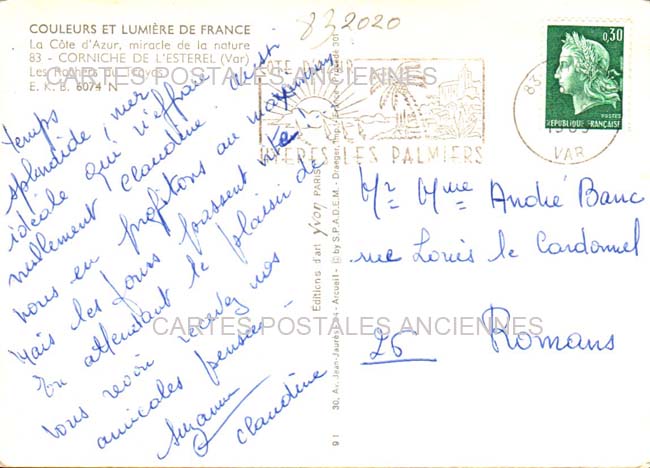 83 2020
COULEURS ET LUMIÈRE DE FRANCE
La Côte d'Azur, miracle de la nature
83 - CORNICHE DE L'ESTEREL (Var)
Les Rochers
E. K. B. 6074 N
CARTES POSTALES ANCIENNES
temps
splendide, mer
idéale qui n'effraie
nullement Claudine. Aussi
nous en profitons au maximum
Mais les jours passent vite!
En attendant le plaisir de
vous revoir recevez nos
amicales pensées -
Suzanne
Claudine
Editions d'art yvon PARIS
30, Av. Jean-Jaurès - Arcueil - © by S.P.A.D.E.M. Draeger, Imp.
91
HYERES LES PALMIERS
83
VAR
0,30
POSTES
REPUBLIQUE FRANÇAISE
Mr Mme André Banc
rue Louis le Cardonnel
26 Romans
CARTES POSTALES ANCIENNES